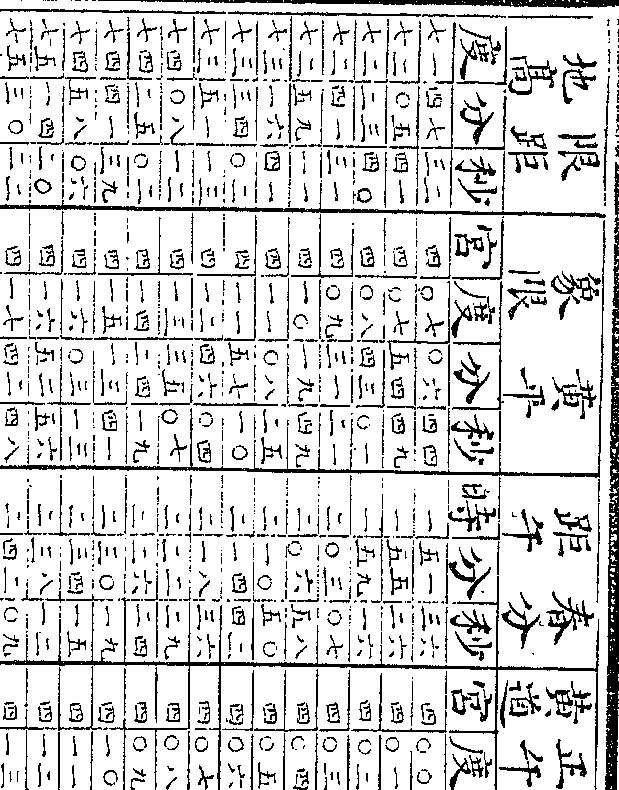 限距地高 黄平象限 春分距午 正午黄道
度 分 秒 宮 度 分 秒 時 分 秒 宮 度
七一 四七 三二 四 〇七 〇六 四四 一 五一 三六 四 〇〇
七二 〇五 四一 四 〇七 五四 四九 一 五五 二六 四 〇一
七二 二三 四〇 四 〇八 四三 〇一 一 五九 一六 四 〇二
七二 四一 三一 四 〇九 三一 二二 二 〇三 〇七 四 〇三
七二 五九 一一 四 一〇 一九 四九 二 〇六 五八 四 〇四
七三 一六 四一 四 一一 〇八 二五 二 一〇 五〇 四 〇五
七三 三四 〇二 四 一一 五七 一〇 二 一四 四二 四 〇六
七三 五一 一三 四 一二 四六 〇四 二 一八 三六 四 〇七
七四 〇八 一二 四 一三 三五 〇七 二 二二 二九 四 〇八
七四 二五 〇二 四 一四 二四 一九 二 二六 二四 四 〇九
七四 四一 三九 四 一五 一三 四一 二 三〇 一九 四 一〇
七四 五八 〇六 四 一六 〇三 一三 二 三四 一五 四 一一
七五 一四 二〇 四 一六 五二 五六 二 三八 一二 四 一二
七五 三〇 二二 四 一七 四二 四八 二 四二 〇九 四 一三